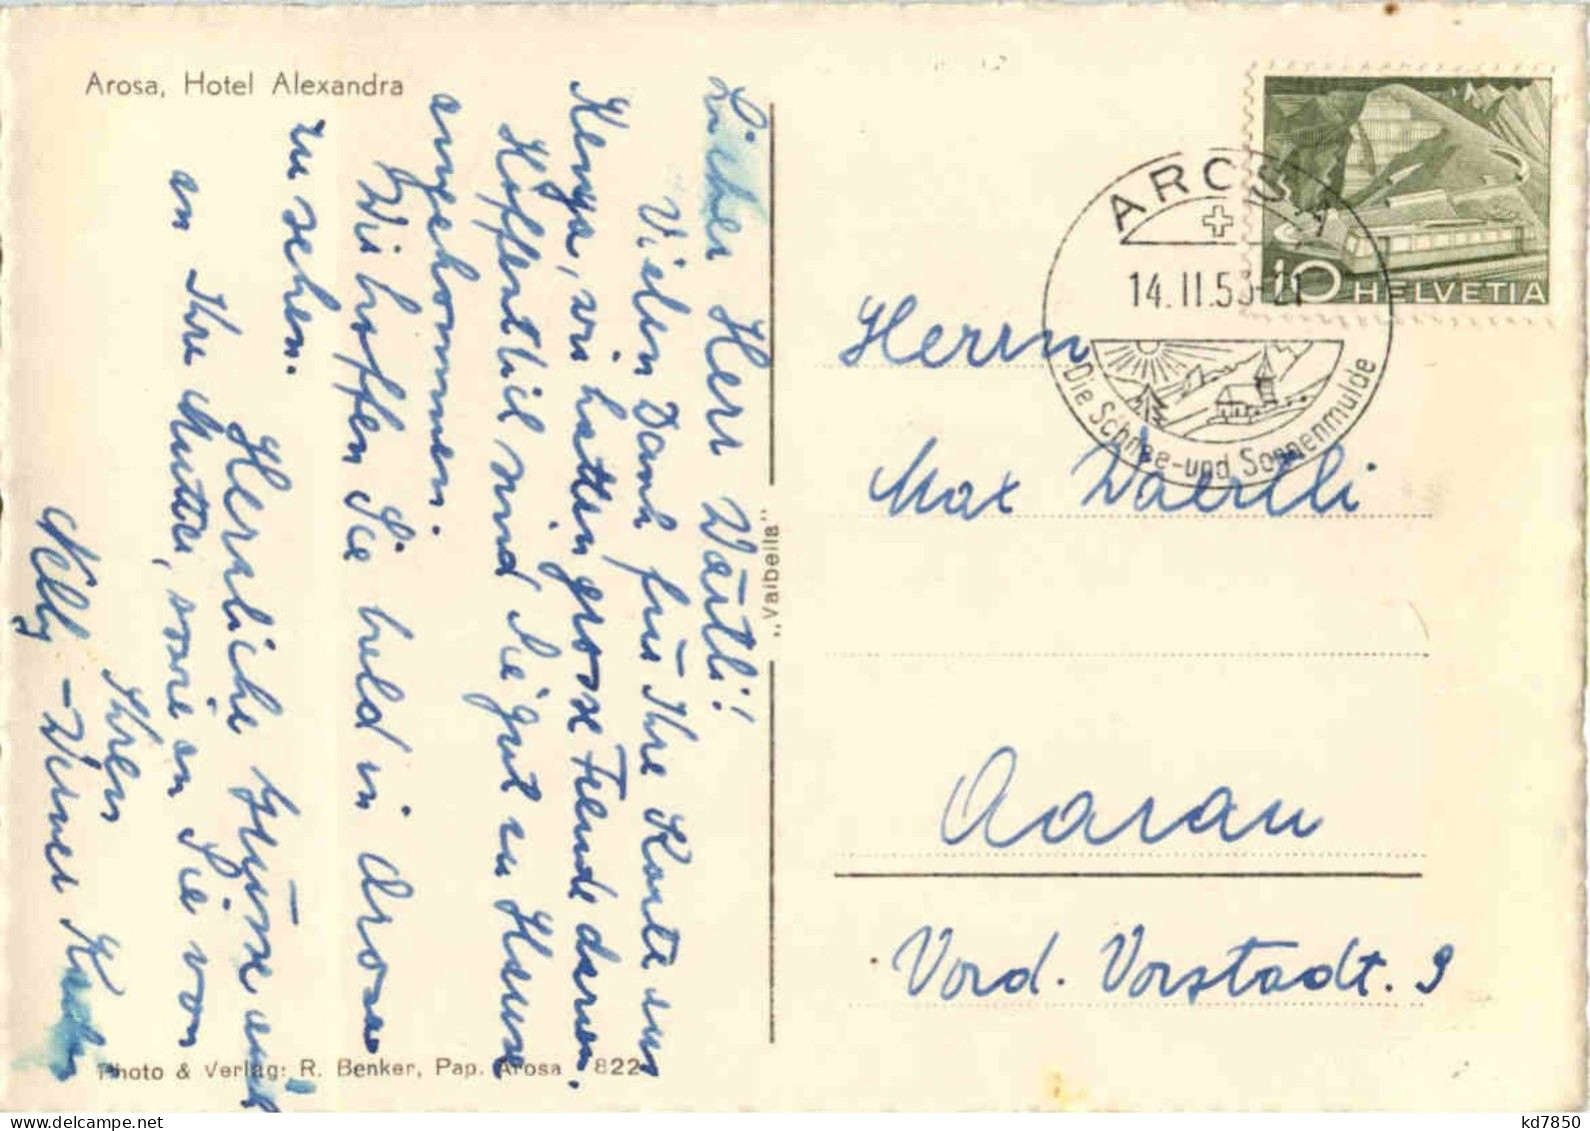 Arosa, Hotel Alexandra
Lieber Herr Wärtli!
Vielen Dank für Ihre Karte aus
Kenya, wir hatten grosse Freude daran.
Hoffentlich sind Sie gut zu Hause
angekommen.
Wir hoffen Sie bald in Arosa
zu sehen.
Herzliche Grüsse auch
an Ihre Mutter, sowie an Sie von
Ihren
Nelly - Werner
"Valbella"
Photo & Verlag: R. Benker, Pap. Arosa 822
AROSA
14.II.53-21
Die Schnee- und Sonnenmulde
10 HELVETIA
Herrn
Max Waertli
Aarau
Vord. Vorstadt. 9
kd7850